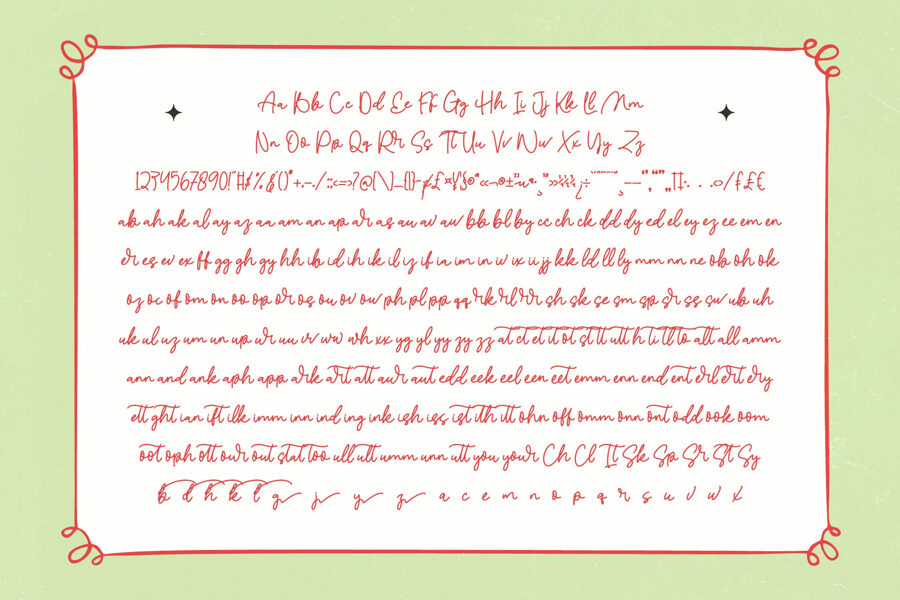 Aa Bb Cc Dd Ee Ff Gg Hh Ii Jj Kk Ll Mm
Nn Oo Pp Qq Rr Ss Tt Uu Vv Ww Xx Yy Zz
1234567890!"#$%&'()*+,-./:;<=>?@[\]_{|}~
ab ah ak al ay az aa am an ap ar as au av aw bb bl by cc ch ck dd dy ed el ey ez ee em en
er es ev ex ff gg gh gy hh ib id ih ik il iz if ia im in iv ix ii jj kk ld ll ly mm nn ne ob oh ok
oz oc of om on oo op or os ou ov ow ph pl pp qq rk rl rr sh sk se sm sp sr ss sw ub uh
uk ul uz um un up ur uu vv ww wh xx yg yl yy zy zz at ct et it ot st tt utt h ti tl to alt all amm
ann and ank aph app ark art att aur aut edd eek eel een eet emm enn end ent erl ert ery
ett ght ian ift ilk imm inn ind ing ink ish iss ist ith itt ohn off omm onn ont odd ook oom
oot oph ott our out stat too ull ult umm unn utt you your Ch Cl It Sk Sp Sr St Sy
b d h k l g j y z a c e m n o p q r s u v w x